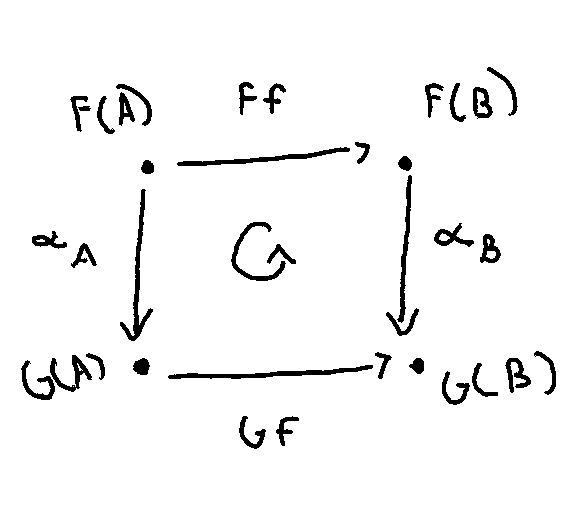 F(A) Ff F(B)
αA αB
G(A) G(B)
Gf